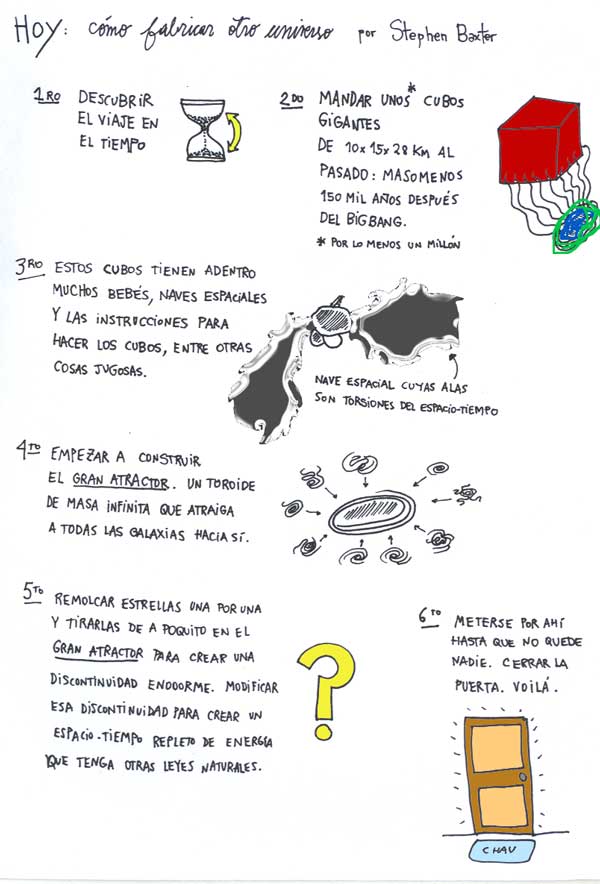 HOY: cómo fabricar otro universo por Stephen Baxter
1RO DESCUBRIR
EL VIAJE EN
EL TIEMPO
2DO MANDAR UNOS* CUBOS
GIGANTES
DE 10x15x28 KM AL
PASADO: MASOMENOS
150 MIL AÑOS DESPUÉS
DEL BIGBANG.
* POR LO MENOS UN MILLÓN
3RO ESTOS CUBOS TIENEN ADENTRO
MUCHOS BEBÉS, NAVES ESPACIALES
Y LAS INSTRUCCIONES PARA
HACER LOS CUBOS, ENTRE OTRAS
COSAS JUGOSAS.
NAVE ESPACIAL CUYAS ALAS
SON TORSIONES DEL ESPACIO-TIEMPO
4TO EMPEZAR A CONSTRUIR
EL GRAN ATRACTOR. UN TOROIDE
DE MASA INFINITA QUE ATRAIGA
A TODAS LAS GALAXIAS HACIA SÍ.
5TO REMOLCAR ESTRELLAS UNA POR UNA
Y TIRARLAS DE A POQUITO EN EL
GRAN ATRACTOR PARA CREAR UNA
DISCONTINUIDAD ENOOORME. MODIFICAR
ESA DISCONTINUIDAD PARA CREAR UN
ESPACIO-TIEMPO REPLETO DE ENERGÍA
QUE TENGA OTRAS LEYES NATURALES.
?
6TO METERSE POR AHÍ
HASTA QUE NO QUEDE
NADIE. CERRAR LA
PUERTA. VOILÁ.
CHAU